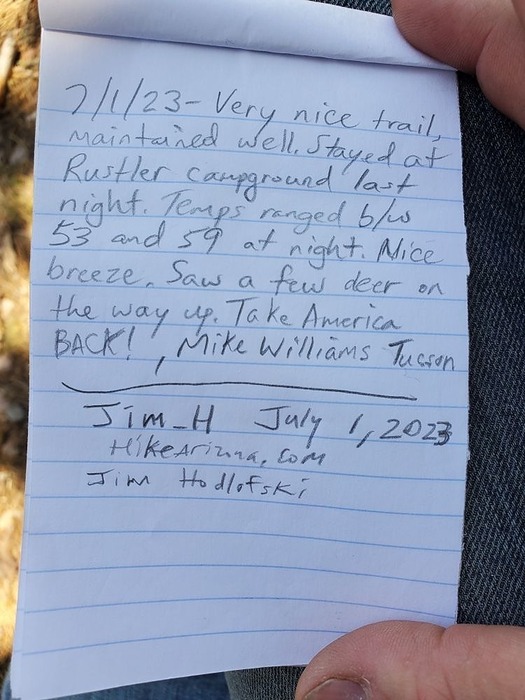 7/1/23- Very nice trail,
maintained well. Stayed at
Rustler campground last
night. Temps ranged b/w
53 and 59 at night. Nice
breeze. Saw a few deer on
the way up. Take America
BACK! , Mike Williams Tucson
Jim_H July 1, 2023
HikeArizona.com
Jim Hodlofski